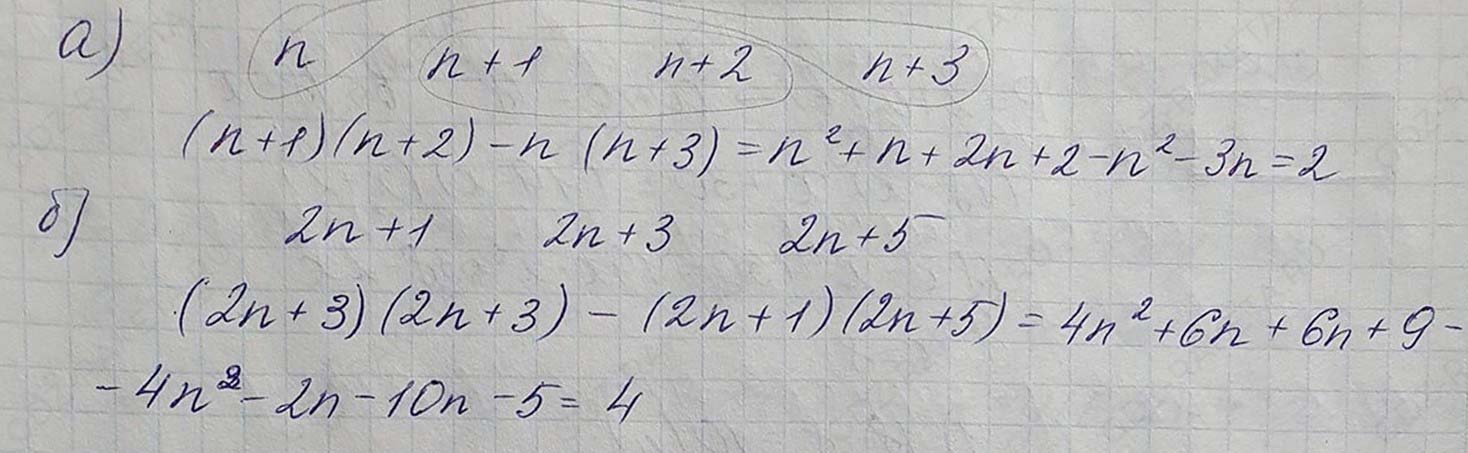 а) n n+1 n+2 n+3
(n+1)(n+2)-n(n+3)=n²+n+2n+2-n²-3n=2
б) 2n+1 2n+3 2n+5
(2n+3)(2n+3)-(2n+1)(2n+5)=4n²+6n+6n+9-
-4n²-2n-10n-5=4